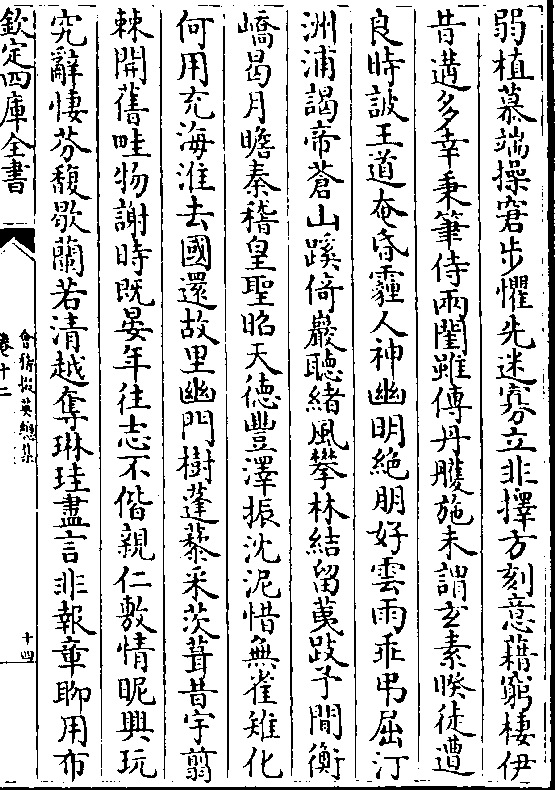 弱植慕端操窘步懼先迷寡立非擇方刻意藉窮棲伊
昔遘多幸秉筆侍兩閨雖傳丹雘施未謂玄素睽徒遭
良時詖王道奄昏霾人神幽明絶朋好雲雨乖弔屈汀
洲浦謁帝蒼山蹊倚巖聽緒風攀林結留荑跂予間衡
嶠曷月瞻秦稽皇聖昭天德豐澤振沈泥惜無雀雉化
何用充海淮去國還故里幽門樹蓬藜采茨葺昔宇翦
棘開舊畦物謝時既晏年往志不偕親仁敷情昵興玩
究辭悽芬馥歇蘭若清越奪琳珪盡言非報章聊用布
欽定四庫全書
會稽掇英總集
卷十二
十四